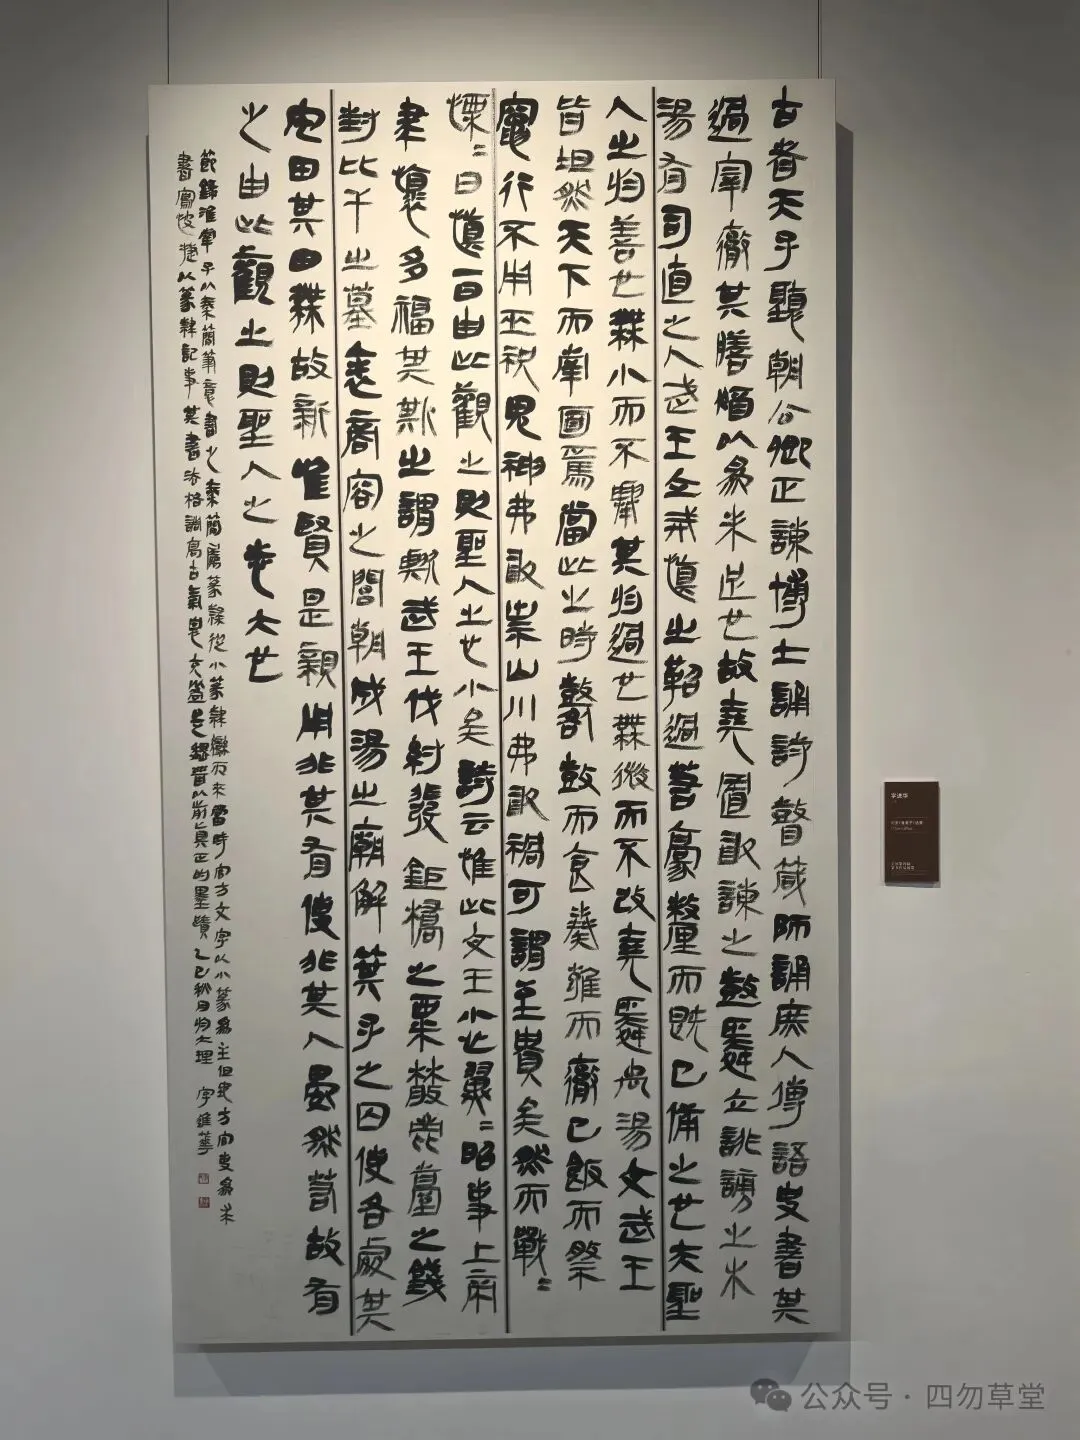 古者天子聽朝公卿正諫博士誦詩瞽箴師誦庶人傳語史書其
過宰徹其膳猶以為未足也故堯置敢諫之鼓舜立誹謗之木
湯有司直之人武王立戒慎之鞀過若豪釐而既已備之也夫聖
人之於善也無小而不舉其於過也無微而不改堯舜禹湯文武王
皆坦然天下而南面焉當此之時鼛鼓而食奏雍而徹已飯而祭
竈行不用巫祝鬼神弗敢祟山川弗敢禍可謂至貴矣然而戰〻
慄〻日慎一日由此觀之則聖人之心小矣詩云惟此文王小心翼〻昭事上帝
聿懷多福其斯之謂歟武王伐紂發鉅橋之粟散鹿臺之錢
封比干之墓表商容之閭朝成湯之廟解箕子之囚使各處其
宅田其田無故新惟賢是親用非其有使非其人晏然若故有
之由此觀之則聖人之志大也
節錄淮南子以秦簡筆意書之秦簡屬篆隸從小篆隸變而來當時官方文字以小篆為主但民方間吏為求
書寫便捷以篆隸記事其書法格調高古氣息 魏晉以前真正的墨蹟乙巳秋月於大理 字進華
字进华
公众号·四勿草堂